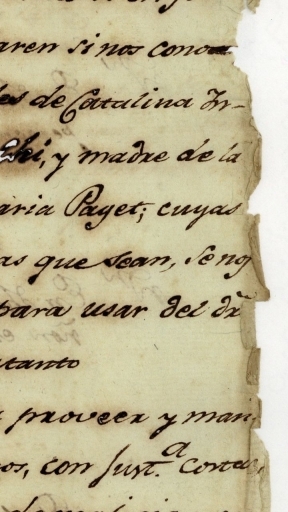 aren sinos cono
les de Catalina Ir-
hi, y madre de la
aria Paget; cuyas
as que sean, se ng
para usar del dr̃
tanto
proveer y man
os, con Just.ª costas,